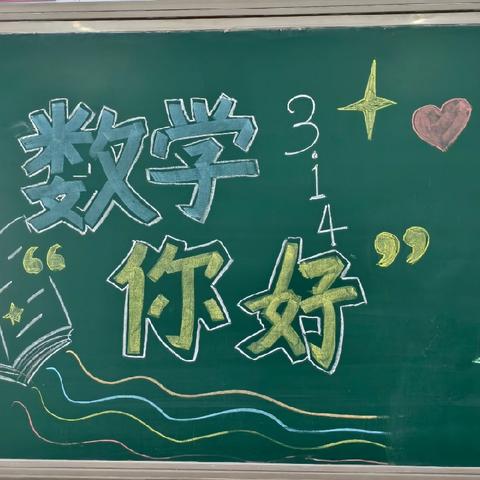 数学
3.14
“你好”